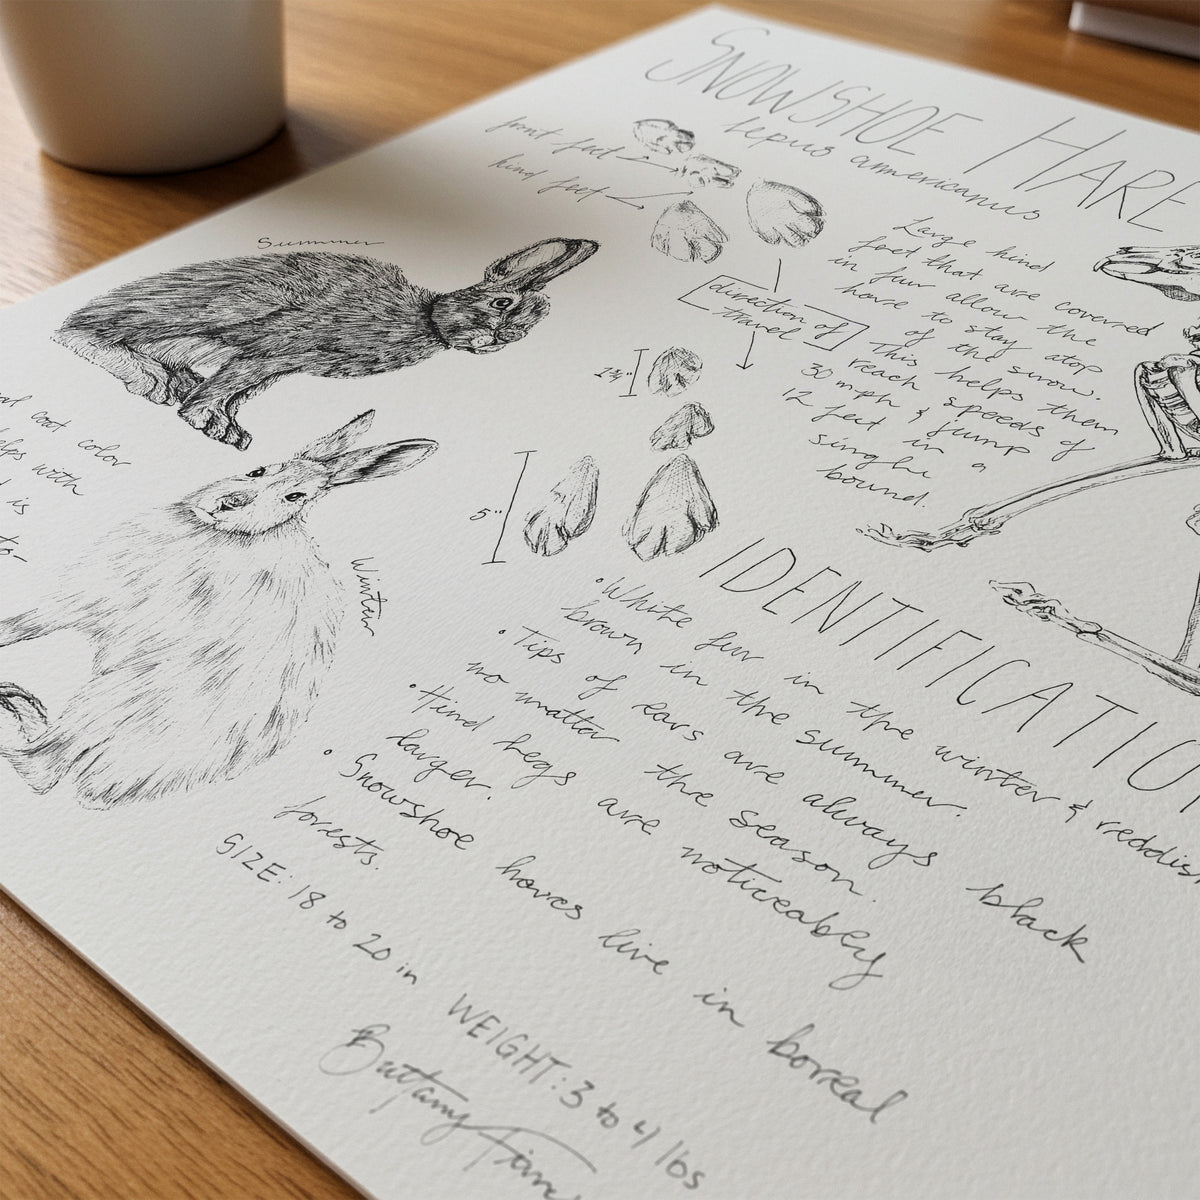 SNOWSHOE HARE
lepus ammericanus
front feet
hind feet
Large hind
feet that are covered
in fur allow the
hare to stay atop
of the snow.
This helps them
reach speeds of
30 mph & jump
12 feet in a
single
bound.
direction of
travel
1¾"
5"
Summer
Winter
coat color
helps with
is
to
IDENTIFICATIO
• White fur in the winter & reddish
brown in the summer.
• Tips of ears are always black
no matter the season.
• Hind legs are noticeably
larger.
• Snowshoe hares live in boreal
forests.
SIZE: 18 to 20 in WEIGHT: 3 to 4 lbs
Brittany